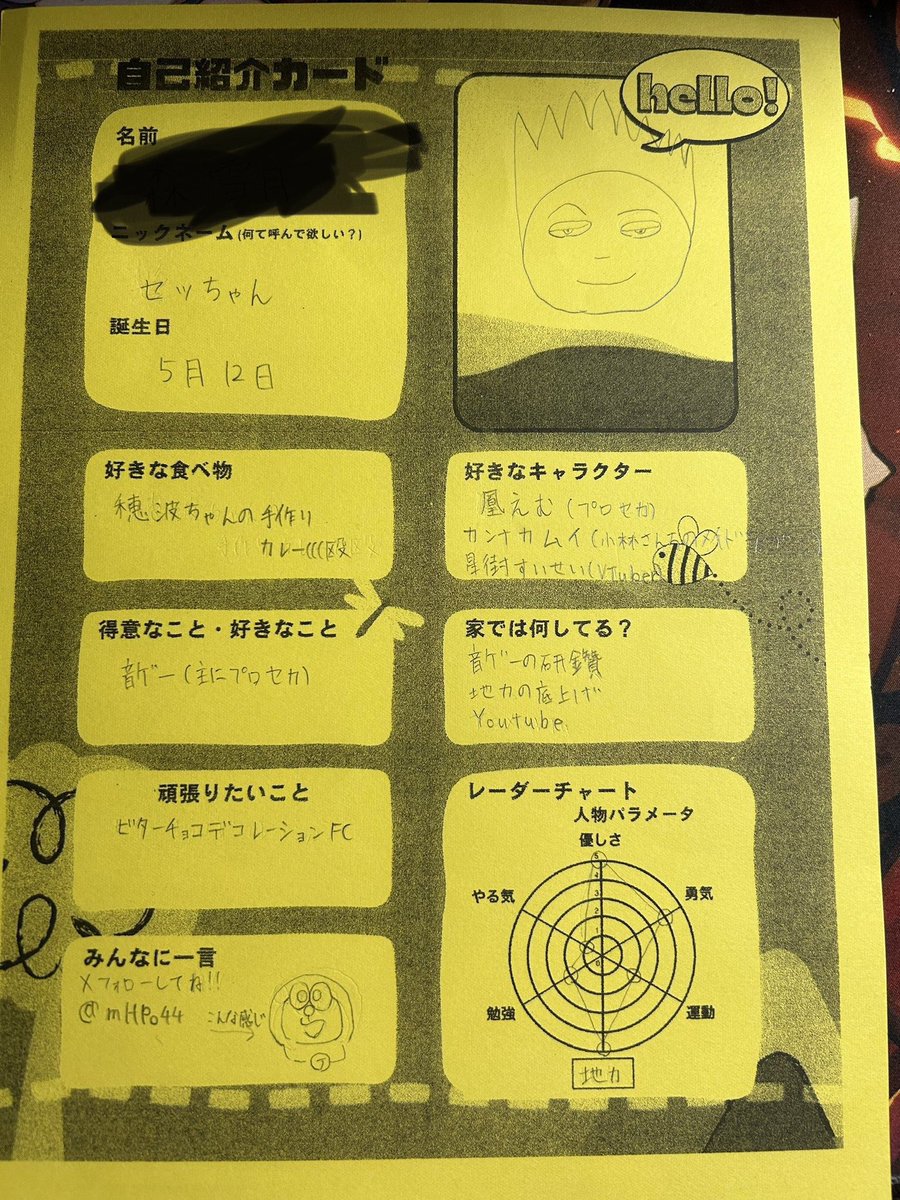 自己紹介カード
hello!
名前
ニックネーム(何て呼んで欲しい?)
セッちゃん
誕生日
5月12日
好きな食べ物
穂波ちゃんの手作り
カレー(((殴
好きなキャラクター
鳳えむ(プロセカ)
カンナカムイ(小林さんちのメイドラゴン
星街すいせい(VTuber)
得意なこと・好きなこと
音ゲー(主にプロセカ)
家では何してる?
音ゲーの研鑽
地力の底上げ
Youtube
頑張りたいこと
ビターチョコデコレーションFC
レーダーチャート
人物パラメータ
優しさ
やる気
勇気
5
4
3
2
1
0
勉強
運動
地力
みんなに一言
Xフォローしてね!!
@mHPo44
こんな感じ